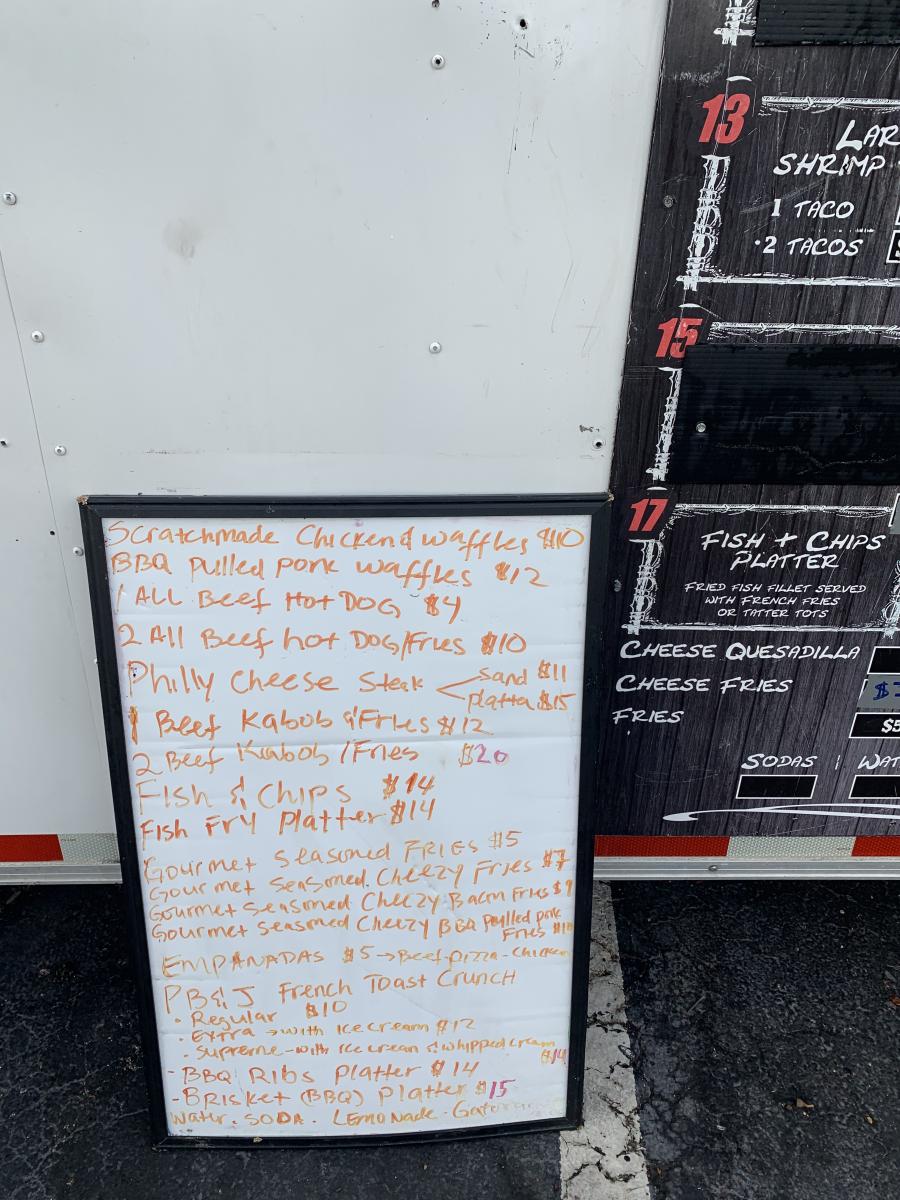 Scratchmade Chicken & waffles $10
BBQ Pulled pork waffles $12
1 ALL Beef HOT DOG $4
2 All Beef hot DOG/Fries $10
Philly Cheese Steak
Sand $11
platta $15
1 Beef Kabob & Fries $12
2 Beef Kabob / Fries $20
Fish & Chips $14
Fish Fry Platter $14
Gourmet Seasoned FRIES $5
Gourmet seasoned Cheezy Fries $7
Gourmet seasoned Cheezy Bacon Fries
Gourmet seasoned Cheezy BBQ pulled pork
Fries
EMPANADAS $5 → Beef-pizza-Chicken
PB&J French Toast Crunch
• Regular $10
• Extra → with Ice cream $12
• Supreme - with Ice cream & whipped cream
$14
- BBQ Ribs Platter $14
- Brisket (BBQ) Platter $15
Water . SODA . LEMONade .
13
SHRIMP
1 TACO
•2 TACOS
15
17
FISH + CHIPS
PLATTER
FRIED FISH FILLET SERVED
WITH FRENCH FRIES
OR TATTER TOTS
CHEESE QUESADILLA
CHEESE FRIES
FRIES $5
SODAS